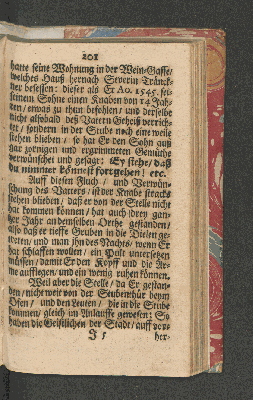 201
hatte seine Wohnung in der Wein-Gasse/
welches Hauß hernach Severin Tränck-
ner besessen: dieser als Er Ao. 1545. sei-
seinem Sohne einen Knaben von 14 Jah-
ren / etwas zu thun befohlen / und derselbe
nicht alsobald deß Vatern Geheiß verrich-
tet / sondern in der Stube noch eine weile
stehen blieben / so hat Er den Sohn auß
gar zornigen und ergrimmeten Gemüthe
verwünschet und gesagt: Ey stehe / daß
du nimmer könnest fortgehen! etc.
Auff diesen Fluch / und Verwün-
schung des Vaters / ist der Knabe stracks
stehen blieben / daß er von der Stelle nicht
hat kommen können / hat auch drey gan-
zer Jahr an demselben Orthe gestanden /
also daß er tieffe Gruben in die Dielen ge-
treten / und man ihn des Nachts / wenn Er
hat schlaffen wollen / ein Pult untersetzen
müssen / damit Er den Kopff und die Ar-
me aufflegen / und ein wenig ruhen können.
Weil aber die Stelle / da Er gestan-
den / nicht weit von der Stubenthür beym
Ofen / und den Leuten / die in die Stube
kommen / gleich im Anlauffe gewesen: So
haben die Geistlichen der Stadt / auff vor-
J 5 her-